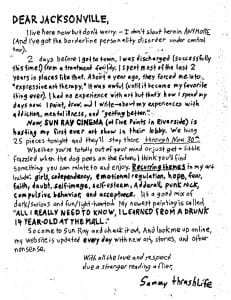 DEAR JACKSONVILLE,
I live here now but don't worry – I don't shoot heroin ANYMORE
(And I've got the borderline personality disorder under control
too).
2 days before I got to town, I was discharged (successfully
this time!) from a treatment facility. I spent most of the last 2
years in places like that. About a year ago, they forced me into
"expressive art therapy." It was awful (until it became my favorite
thing ever). I had no experience with art but that's how I spend my
days now. I paint, draw, and I write – about my experiences with
addiction, mental illness, and "getting better."
Now, SUN RAY CINEMA (at Five Points in Riverside) is
hosting my first ever art show in their lobby. We hung
25 pieces tonight and they'll stay there through Nov 30th.
Whether you're totally out of your mind or just get a little
frazzled when the dog pees on the futon, I think you'll find
something you can relate to and enjoy. Recurring themes in my art
include: girls, independency, emotional regulation, hope, fear,
faith, doubt, self-image, self-esteem, Adderall, punk rock,
compulsive behavior, and acceptance. It's a good mix of
dark/serious and fun/light-hearted. My newest painting is called
"ALL I REALLY NEED TO KNOW, I LEARNED FROM A DRUNK
14 YEAR-OLD AT THE MALL."
So come to Sun Ray and check it out. And look me up online,
my website is updated every day with new art, stories, and other
nonsense.
With all the love and respect
due a stranger reading a flier,
Sammy thrashLife